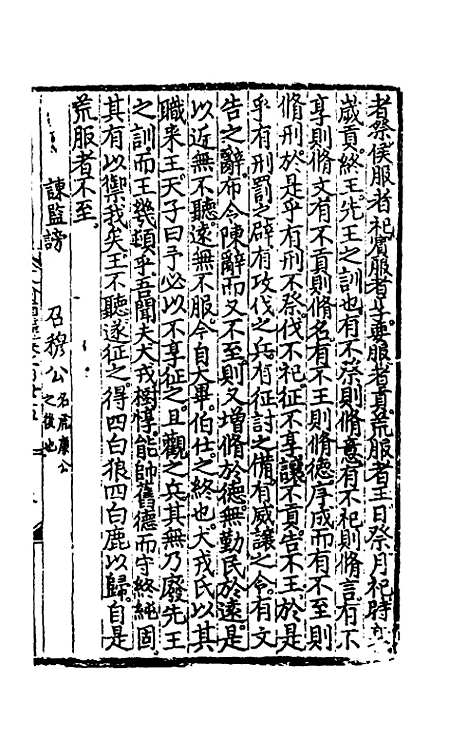 者祭侯服者祀賓服者享要服者貢荒服者王日祭月祀時享
歲貢終王先王之訓也有不祭則脩意有不祀則脩言有不
享則脩文有不貢則脩名有不王則脩德序成而有不至則
脩刑於是乎有刑不祭伐不祀征不享讓不貢告不王於是
乎有刑罰之辟有攻伐之兵有征討之備有威讓之令有文
告之辭布令陳辭而又不至則又增脩於德無勤民於遠是
以近無不聽遠無不服今自大畢伯仕之終也犬戎氏以其
職來王天子曰予必以不享征之且觀之兵其無乃廢先王
之訓而王幾頓乎吾聞夫犬戎樹惇能帥舊德而守終純固
其有以禦我矣王不聽遂征之得四白狼四白鹿以歸自是
荒服者不至
諫監謗 召穆公名虎康公之後也